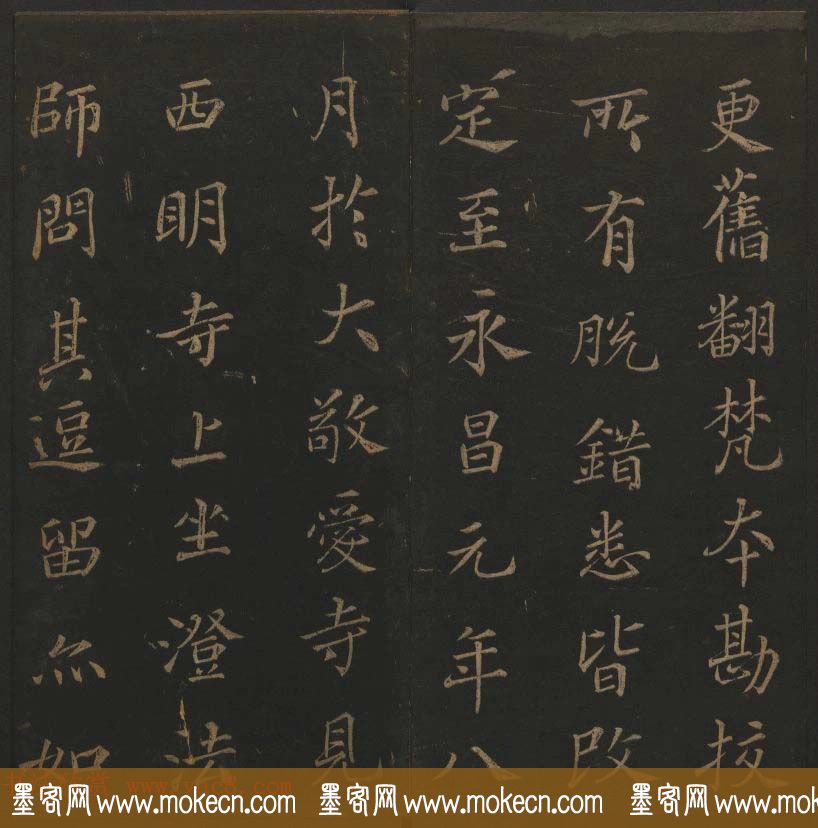 更舊翻梵本勘挍
所有脫錯悉皆改
定至永昌元年八
月於大敬愛寺見
西明寺上坐澄法
師問其逗留亦如
墨客网 www.mokecn.com 墨客网 www.mokecn.com 墨客网 www.mok